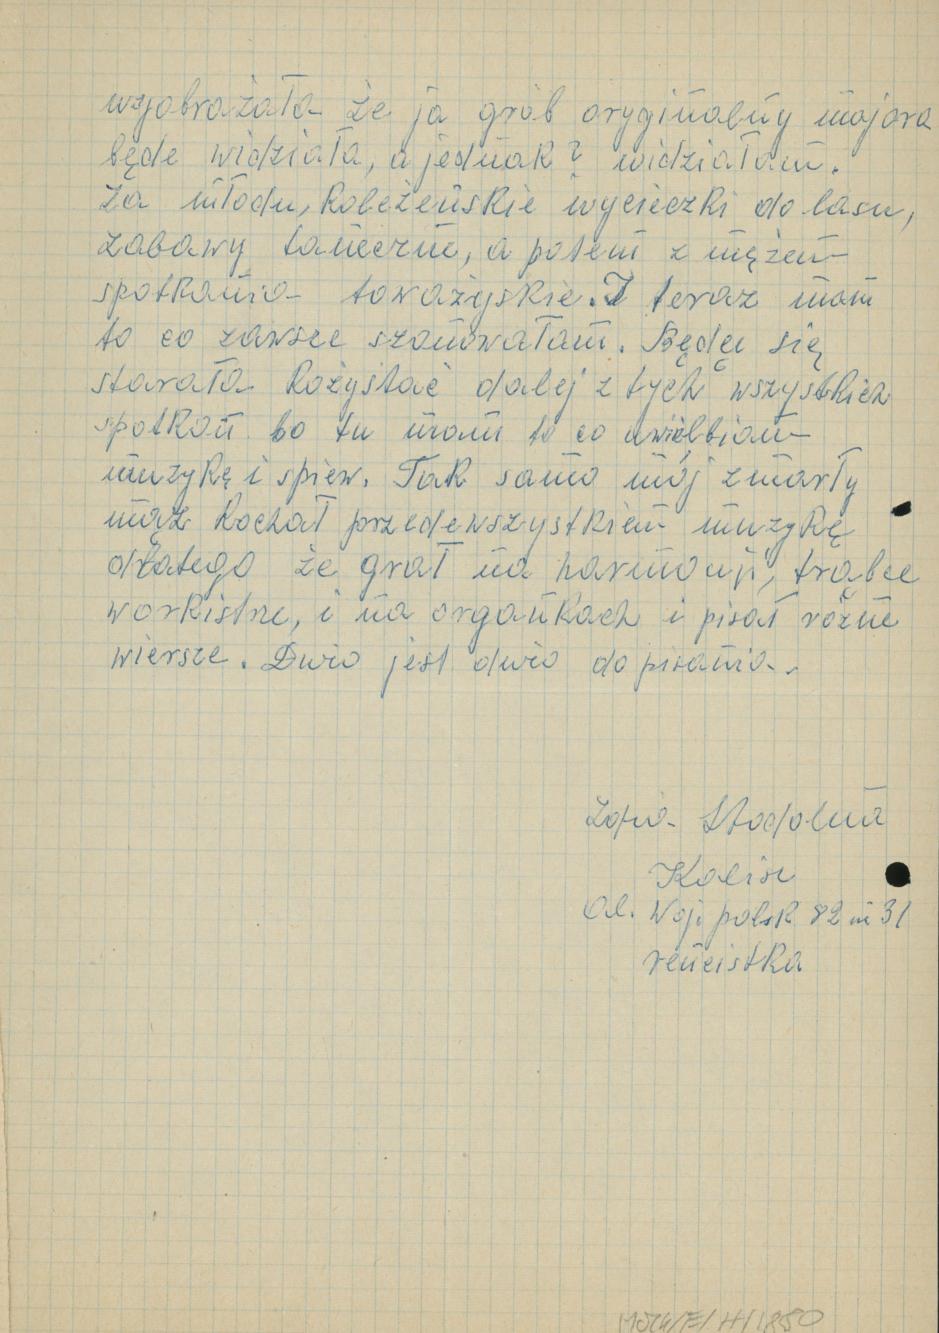 wyobrażała że ja grób oryginalny majora
będe widziała, a jednak? widziałam.
Za młodu, koleżeńskie wycieczki do lasu,
zabawy taneczne, a potem z mężem
spotkania toważyskie. I teraz mam
to co zawsze szanowałam. Będę się
starała kożystać dalej z tych wszystkich
spotkań bo tu mam to co uwielbiam
muzykę i śpiew. Tak samo mój zmarły
mąż kochał przedewszystkiem muzykę
dlatego że grał na harmonji, trąbce
w orkistrze, i na organkach i pisał różne
wiersze. Dużo jest dużo do pisania.
Zofia Stodolna
Kalisz
Al. Woj. polsk 82 m 31
rencistka